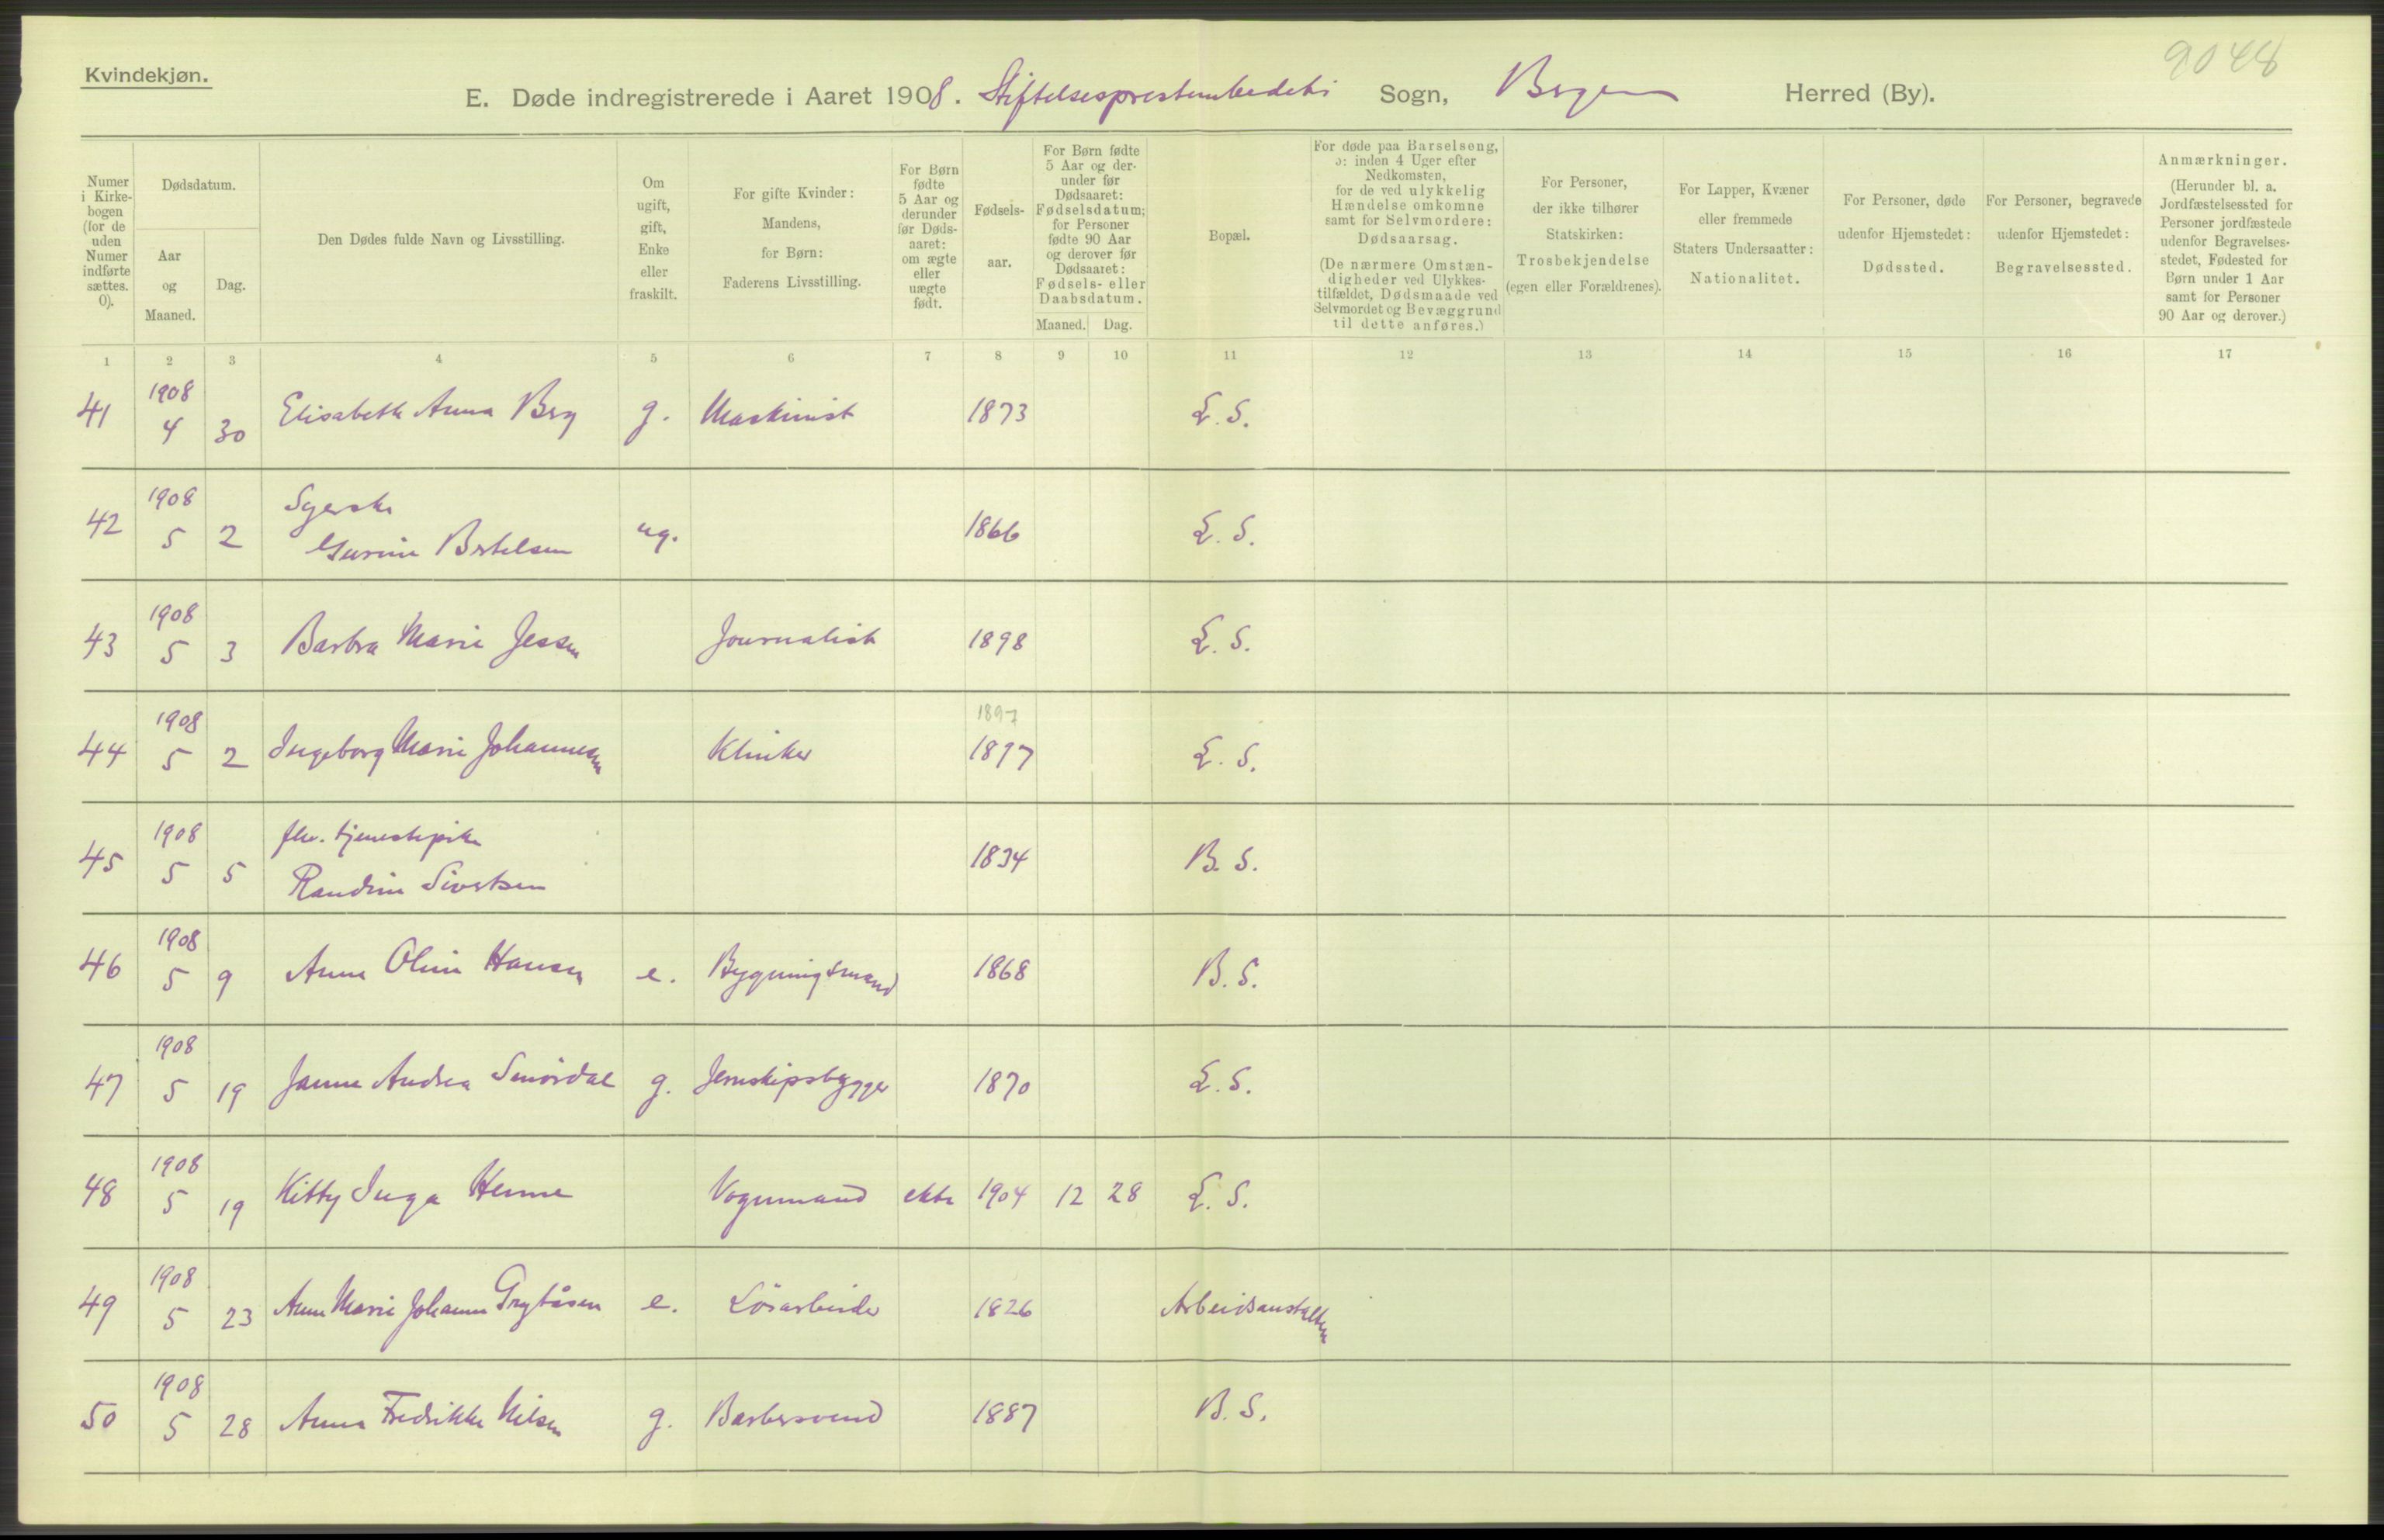 Kvindekjøn.
9048
E. Døde indregistrerede i Aaret 1908. Stiftelsesprestembedets Sogn, Bergen Herred (By).
Numer i Kirkebogen (for de uden Numer indførte sættes. 0).
Dødsdatum.
Aar og Maaned.
Dag.
Den Dødes fulde Navn og Livsstilling.
Om ugift, gift, Enke eller fraskilt.
For gifte Kvinder: Mandens, for Børn: Faderens Livsstilling.
For Børn fødte 5 Aar og derunder før Dødsaaret: om ægte eller uægte født.
Fødselsaar.
For Børn fødte 5 Aar og derunder før Dødsaaret: Fødselsdatum; for Personer fødte 90 Aar og derover før Dødsaaret: Fødsels- eller Daabsdatum.
Maaned. Dag.
Bopæl.
For døde paa Barselseng, ɔ: inden 4 Uger efter Nedkomsten, for de ved ulykkelig Hændelse omkomne samt for Selvmordere: Dødsaarsag. (De nærmere Omstændigheder ved Ulykkestilfældet, Dødsmaade ved Selvmordet og Bevæggrund til dette anføres.)
For Personer, der ikke tilhører Statskirken: Trosbekjendelse (egen eller Forældrenes).
For Lapper, Kvæner eller fremmede Staters Undersaatter: Nationalitet.
For Personer, døde udenfor Hjemstedet: Dødssted.
For Personer, begravede udenfor Hjemstedet: Begravelsessted.
Anmærkninger. (Herunder bl. a. Jordfæstelsessted for Personer jordfæstede udenfor Begravelsesstedet, Fødested for Børn under 1 Aar samt for Personer 90 Aar og derover.)
1 2 3 4 5 6 7 8 9 10 11 12 13 14 15 16 17
41 1908 4 30 Elisabeth Anna Berg g. Maskinist 1873 L. S.
42 1908 5 2 Syerske Gurine Bertelsen ug. 1866 L. S.
43 1908 5 3 Barbra Marie Jessen Journalist 1898 L. S.
1897
44 1908 5 2 Ingeborg Marie Johannesen Klinker 1897 L. S.
45 1908 5 5 fhv. tjenestepike Randine Sivertsen 1834 B. S.
46 1908 5 9 Anna Oline Hansen e. Bygningsmand 1868 B. S.
47 1908 5 19 Janna Andrea Smördal g. Jernskipsbygger 1870 L. S.
48 1908 5 19 Kitty Inga Henne Vognmand ekte 1904 12 28 L. S.
49 1908 5 23 Anne Marie Johanne Grytåsen e. Lösarbeider 1826 Arbeidsanstalten
50 1908 5 28 Anna Fredrikke Nilsen g. Barbersvend 1887 B. S.